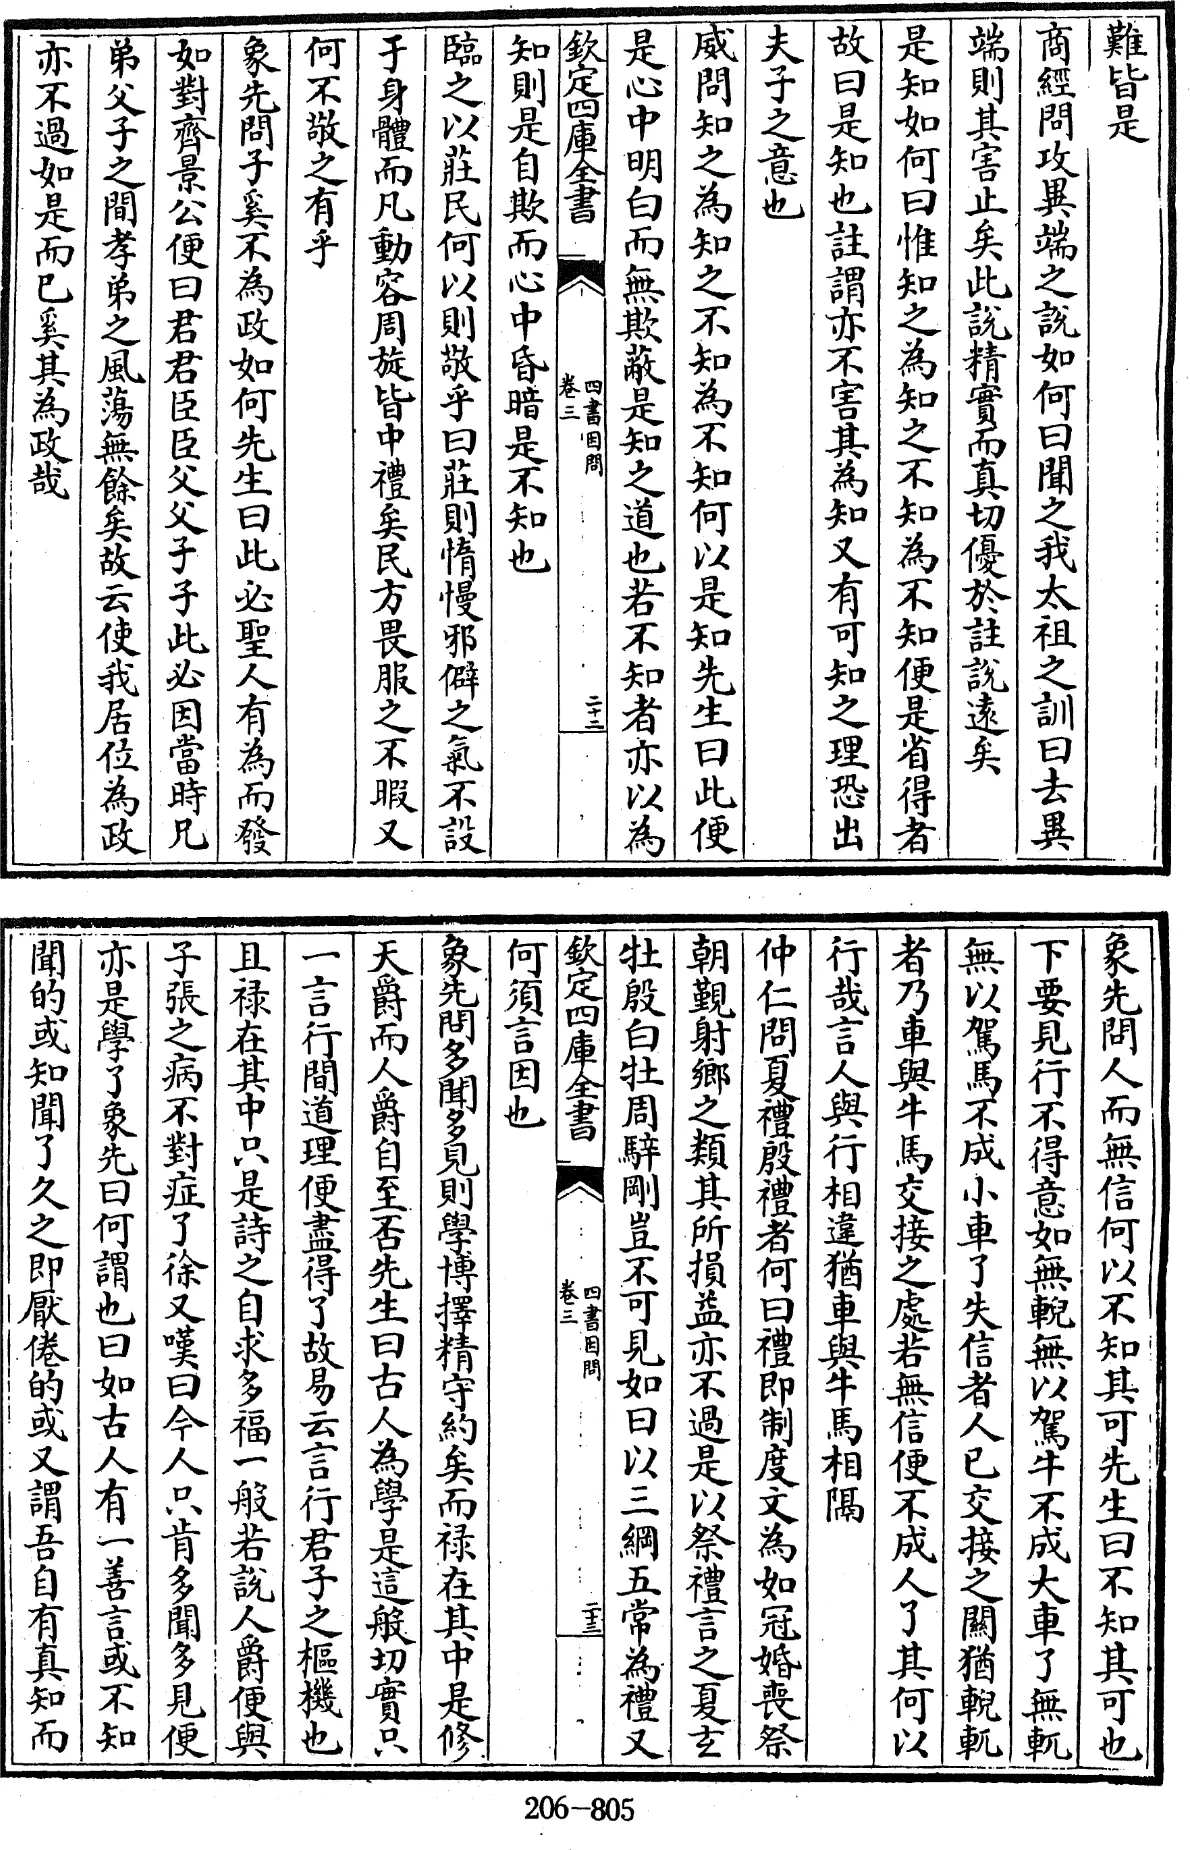 難皆是
商經問攻異端之說如何曰聞之我太祖之訓曰去異
端則其害止矣此說精實而真切優於註說遠矣
是知如何曰惟知之為知之不知為不知便是省得者
故曰是知也註謂亦不害其為知又有可知之理恐出
夫子之意也
威問知之為知之不知為不知何以是知先生曰此便
是心中明白而無欺蔽是知之道也若不知者亦以為
欽定四庫全書
四書因問
卷三
二十二
知則是自欺而心中昏暗是不知也
臨之以莊民何以則敬乎曰莊則惰慢邪僻之氣不設
于身體而凡動容周旋皆中禮矣民方畏服之不暇又
何不敬之有乎
象先問子奚不為政如何先生曰此必聖人有為而發
如對齊景公便曰君君臣臣父父子子此必因當時凡
弟父子之間孝弟之風蕩無餘矣故云使我居位為政
亦不過如是而已奚其為政哉
象先問人而無信何以不知其可先生曰不知其可也
下要見行不得意如無輗無以駕牛不成大車了無軏
無以駕馬不成小車了失信者人已交接之關猶輗軏
者乃車與牛馬交接之處若無信便不成人了其何以
行哉言人與行相違猶車與牛馬相隔
仲仁問夏禮殷禮者何曰禮即制度文為如冠婚喪祭
朝覲射鄉之類其所損益亦不過是以祭禮言之夏玄
牡殷白牡周騂剛豈不可見如曰以三綱五常為禮又
欽定四庫全書
四書因問
卷三
二十三
何須言因也
象先問多聞多見則學博擇精守約矣而祿在其中是修
天爵而人爵自至否先生曰古人為學是這般切實只
一言行間道理便盡得了故易云言行君子之樞機也
且祿在其中只是詩之自求多福一般若說人爵便與
子張之病不對症了徐又嘆曰今人只肯多聞多見便
亦是學了象先曰何謂也曰如古人有一善言或不知
聞的或知聞了久之即厭倦的或又謂吾自有真知而
206-805